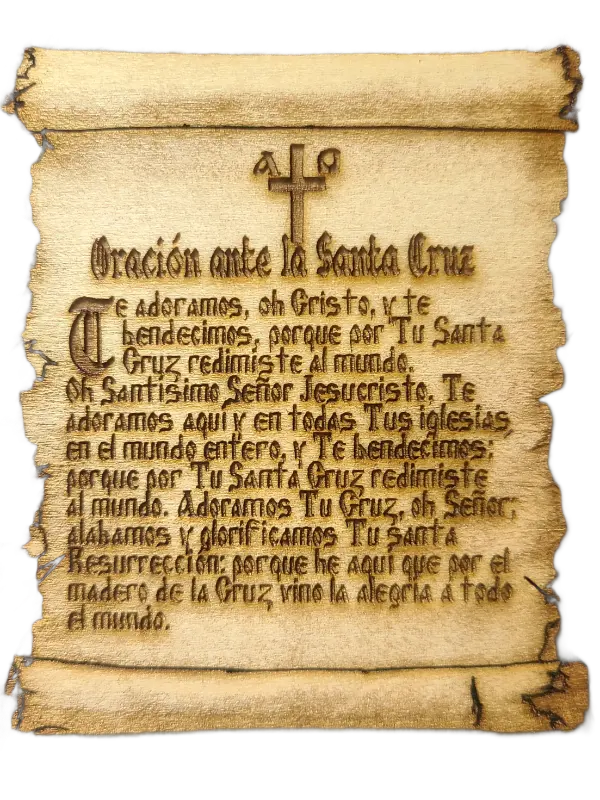 A Ω
Oración ante la Santa Cruz
Te adoramos, oh Cristo, y te
bendecimos, porque por Tu Santa
Cruz redimiste al mundo.
Oh Santísimo Señor Jesucristo, Te
adoramos aquí y en todas Tus iglesias
en el mundo entero, y Te bendecimos;
porque por Tu Santa Cruz redimiste
al mundo. Adoramos Tu Cruz, oh Señor;
alabamos y glorificamos Tu santa
Resurrección: porque he aquí que por el
madero de la Cruz vino la alegría a todo
el mundo.